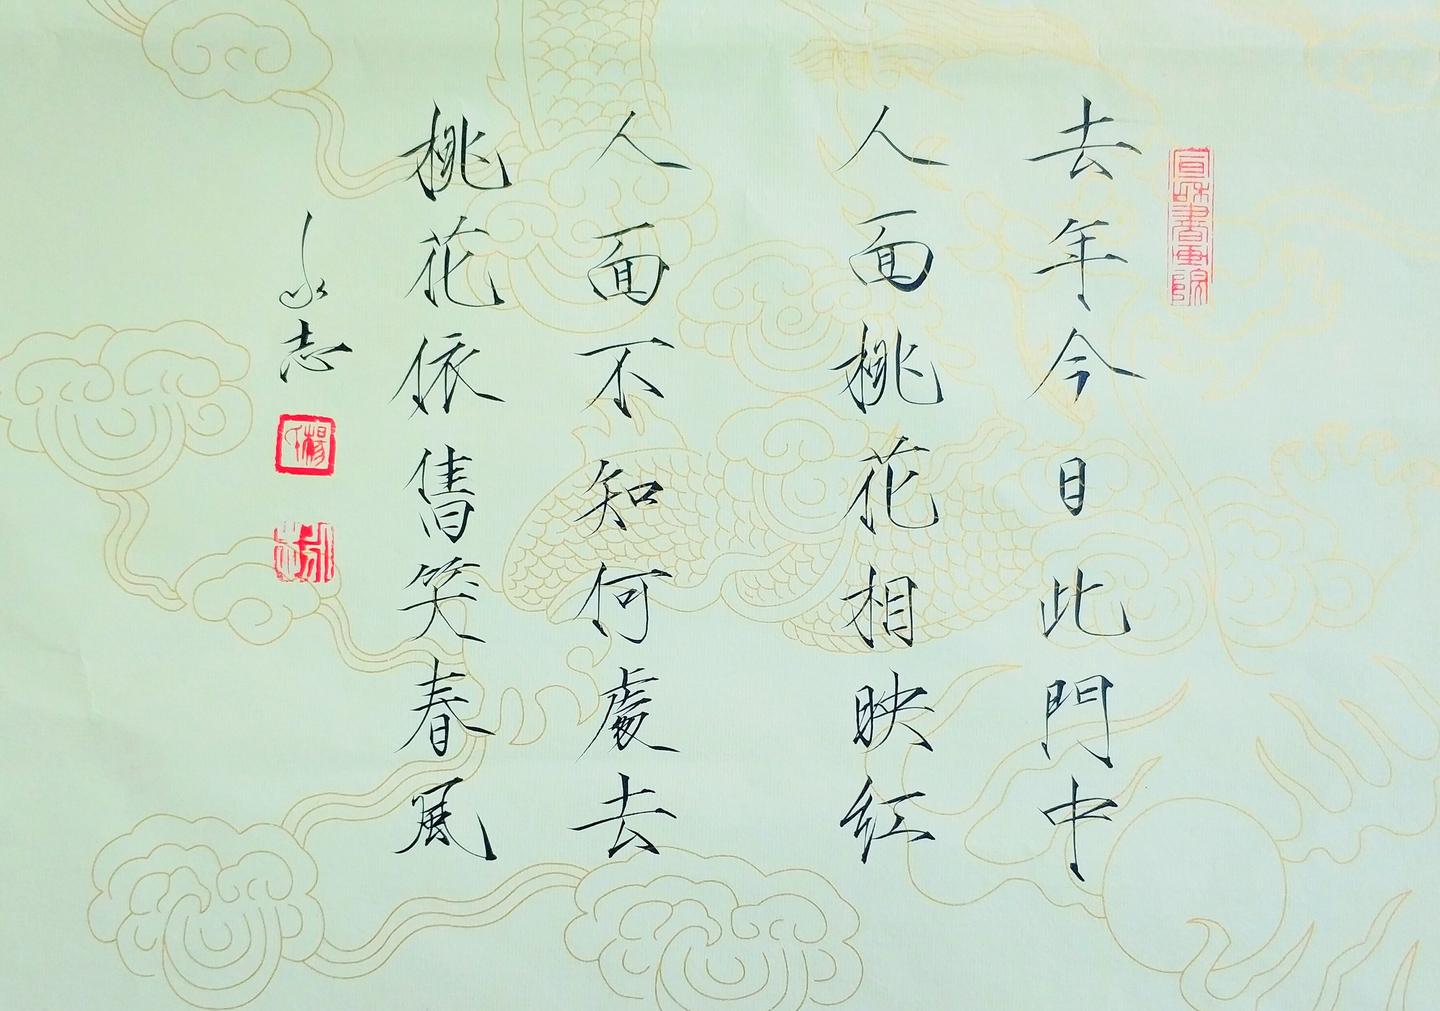 宣和書畫院
去年今日此門中
人面桃花相映红
人面不知何處去
桃花依舊笑春風
永志
楊